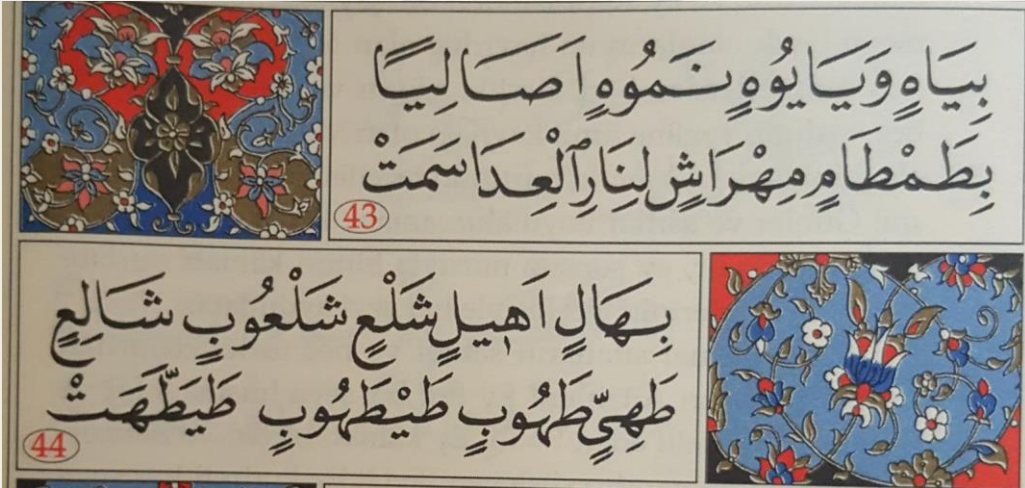 بِيَاهٍ وَيَايُوهٍ نَمُوهٍ اَصَالِيًا
بِطَمْطَامٍ مِهْرَاشٍ لِنَارِ ٱلْعِدَا سَمَتْ
43
بِهَالٍ اَهٖيلٍ شَلْعٍ شَلْعُوبٍ شَالِعٍ
طَهِىٍّ طَهُوبٍ طَيْطَهُوبٍ طَيَطَّهَتْ
44